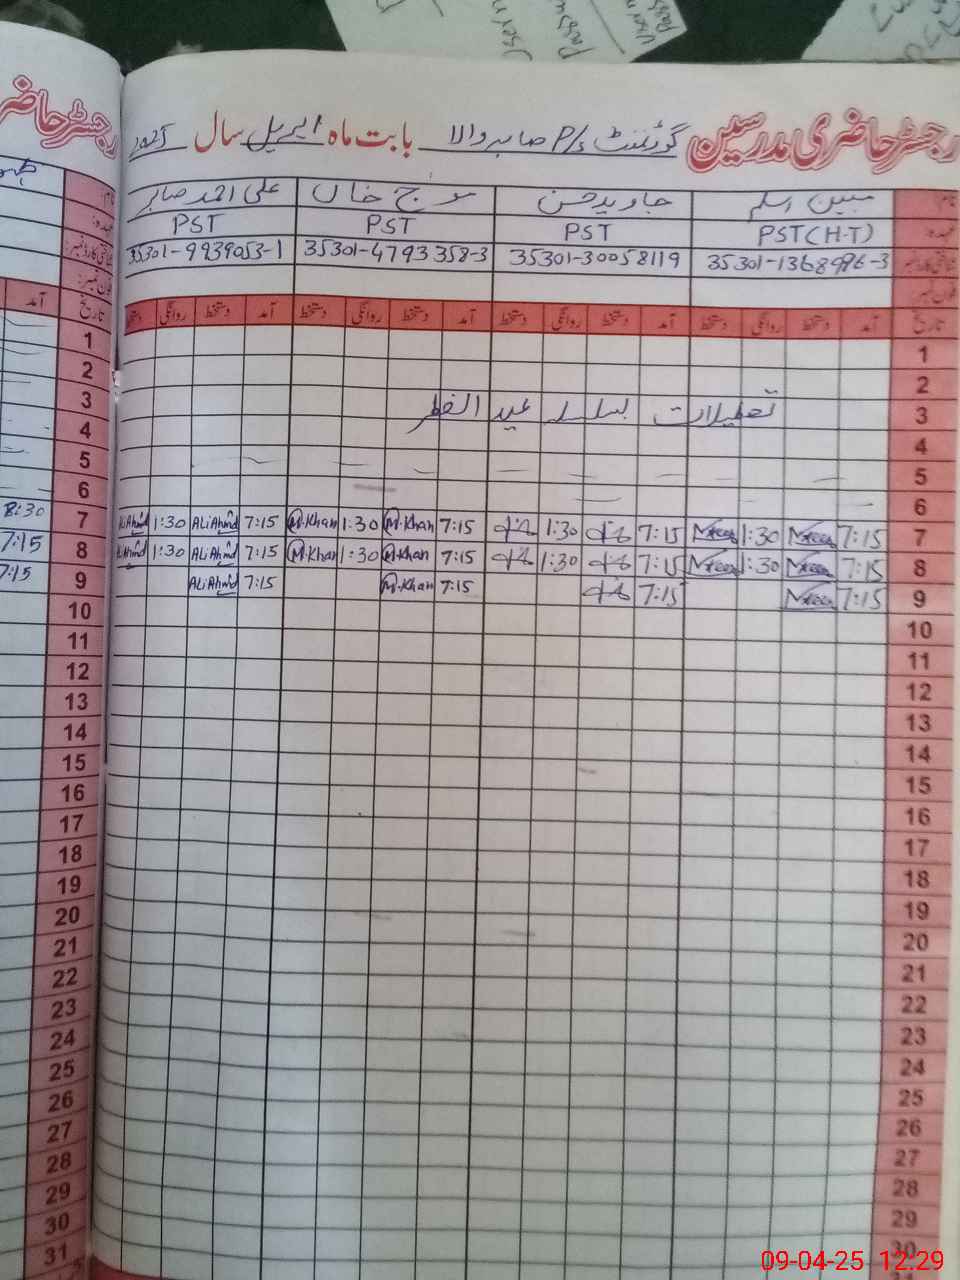 رجسٹر حاضری مدرسین گورنمنٹ P/S صابر والا بابت ماہ اپریل سال 2025
نام مبین اسلم جاوید حسن موج خاں علی احمد صابر
عہدہ: PST(H-T) PST PST PST
شناختی کارڈ نمبر: 35301-1368996-3 35301-30058119 35301-4793358-3 35301-9939053-1
فون نمبر:
تاریخ آمد دستخط روانگی دستخط آمد دستخط روانگی دستخط آمد دستخط روانگی دستخط آمد دستخط روانگی دستخط
1
2
3 تعطیلات بسلسلہ عید الفطر
4
5
6
7 7:15 1:30 7:15 1:30 7:15 M.Khan 1:30 M.Khan 7:15 Ali Ahmd 1:30 Ali Ahmd
8 7:15 1:30 7:15 1:30 7:15 M.Khan 1:30 M.Khan 7:15 Ali Ahmd 1:30 Ali Ahmd
9 7:15 7:15 7:15 M.Khan 7:15 Ali Ahmd
10
11
12
13
14
15
16
17
18
19
20
21
22
23
24
25
26
27
28
29
30
رجسٹر حاضر
نام
عہدہ:
شناختی کارڈ نمبر:
فون نمبر:
تاریخ آمد
1
2
3
4
5
6
7 8:30
8 7:15
9 7:15
10
11
12
13
14
15
16
17
18
19
20
21
22
23
24
25
26
27
28
29
30
31
09-04-25 12:29